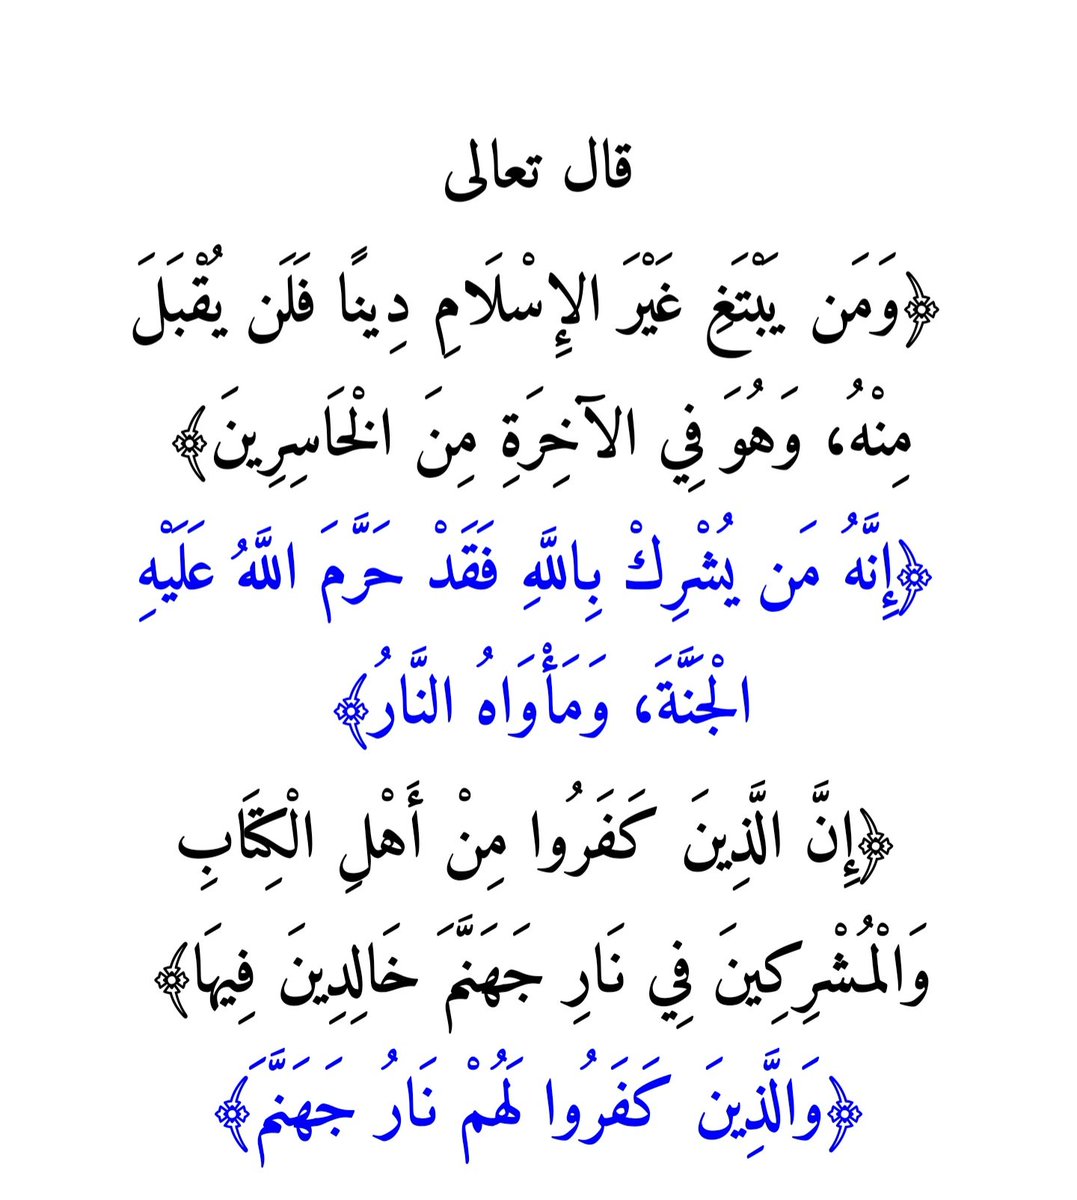 قال تعالى
﴿وَمَن يَبْتَغِ غَيْرَ الإِسْلَامِ دِينًا فَلَن يُقْبَلَ
مِنْهُ، وَهُوَ فِي الآخِرَةِ مِنَ الْخَاسِرِينَ﴾
﴿إِنَّهُ مَن يُشْرِكْ بِاللَّهِ فَقَدْ حَرَّمَ اللَّهُ عَلَيْهِ
الْجَنَّةَ، وَمَأْوَاهُ النَّارُ﴾
﴿إِنَّ الَّذِينَ كَفَرُوا مِنْ أَهْلِ الْكِتَابِ
وَالْمُشْرِكِينَ فِي نَارِ جَهَنَّمَ خَالِدِينَ فِيهَا﴾
﴿وَالَّذِينَ كَفَرُوا لَهُمْ نَارُ جَهَنَّمَ﴾